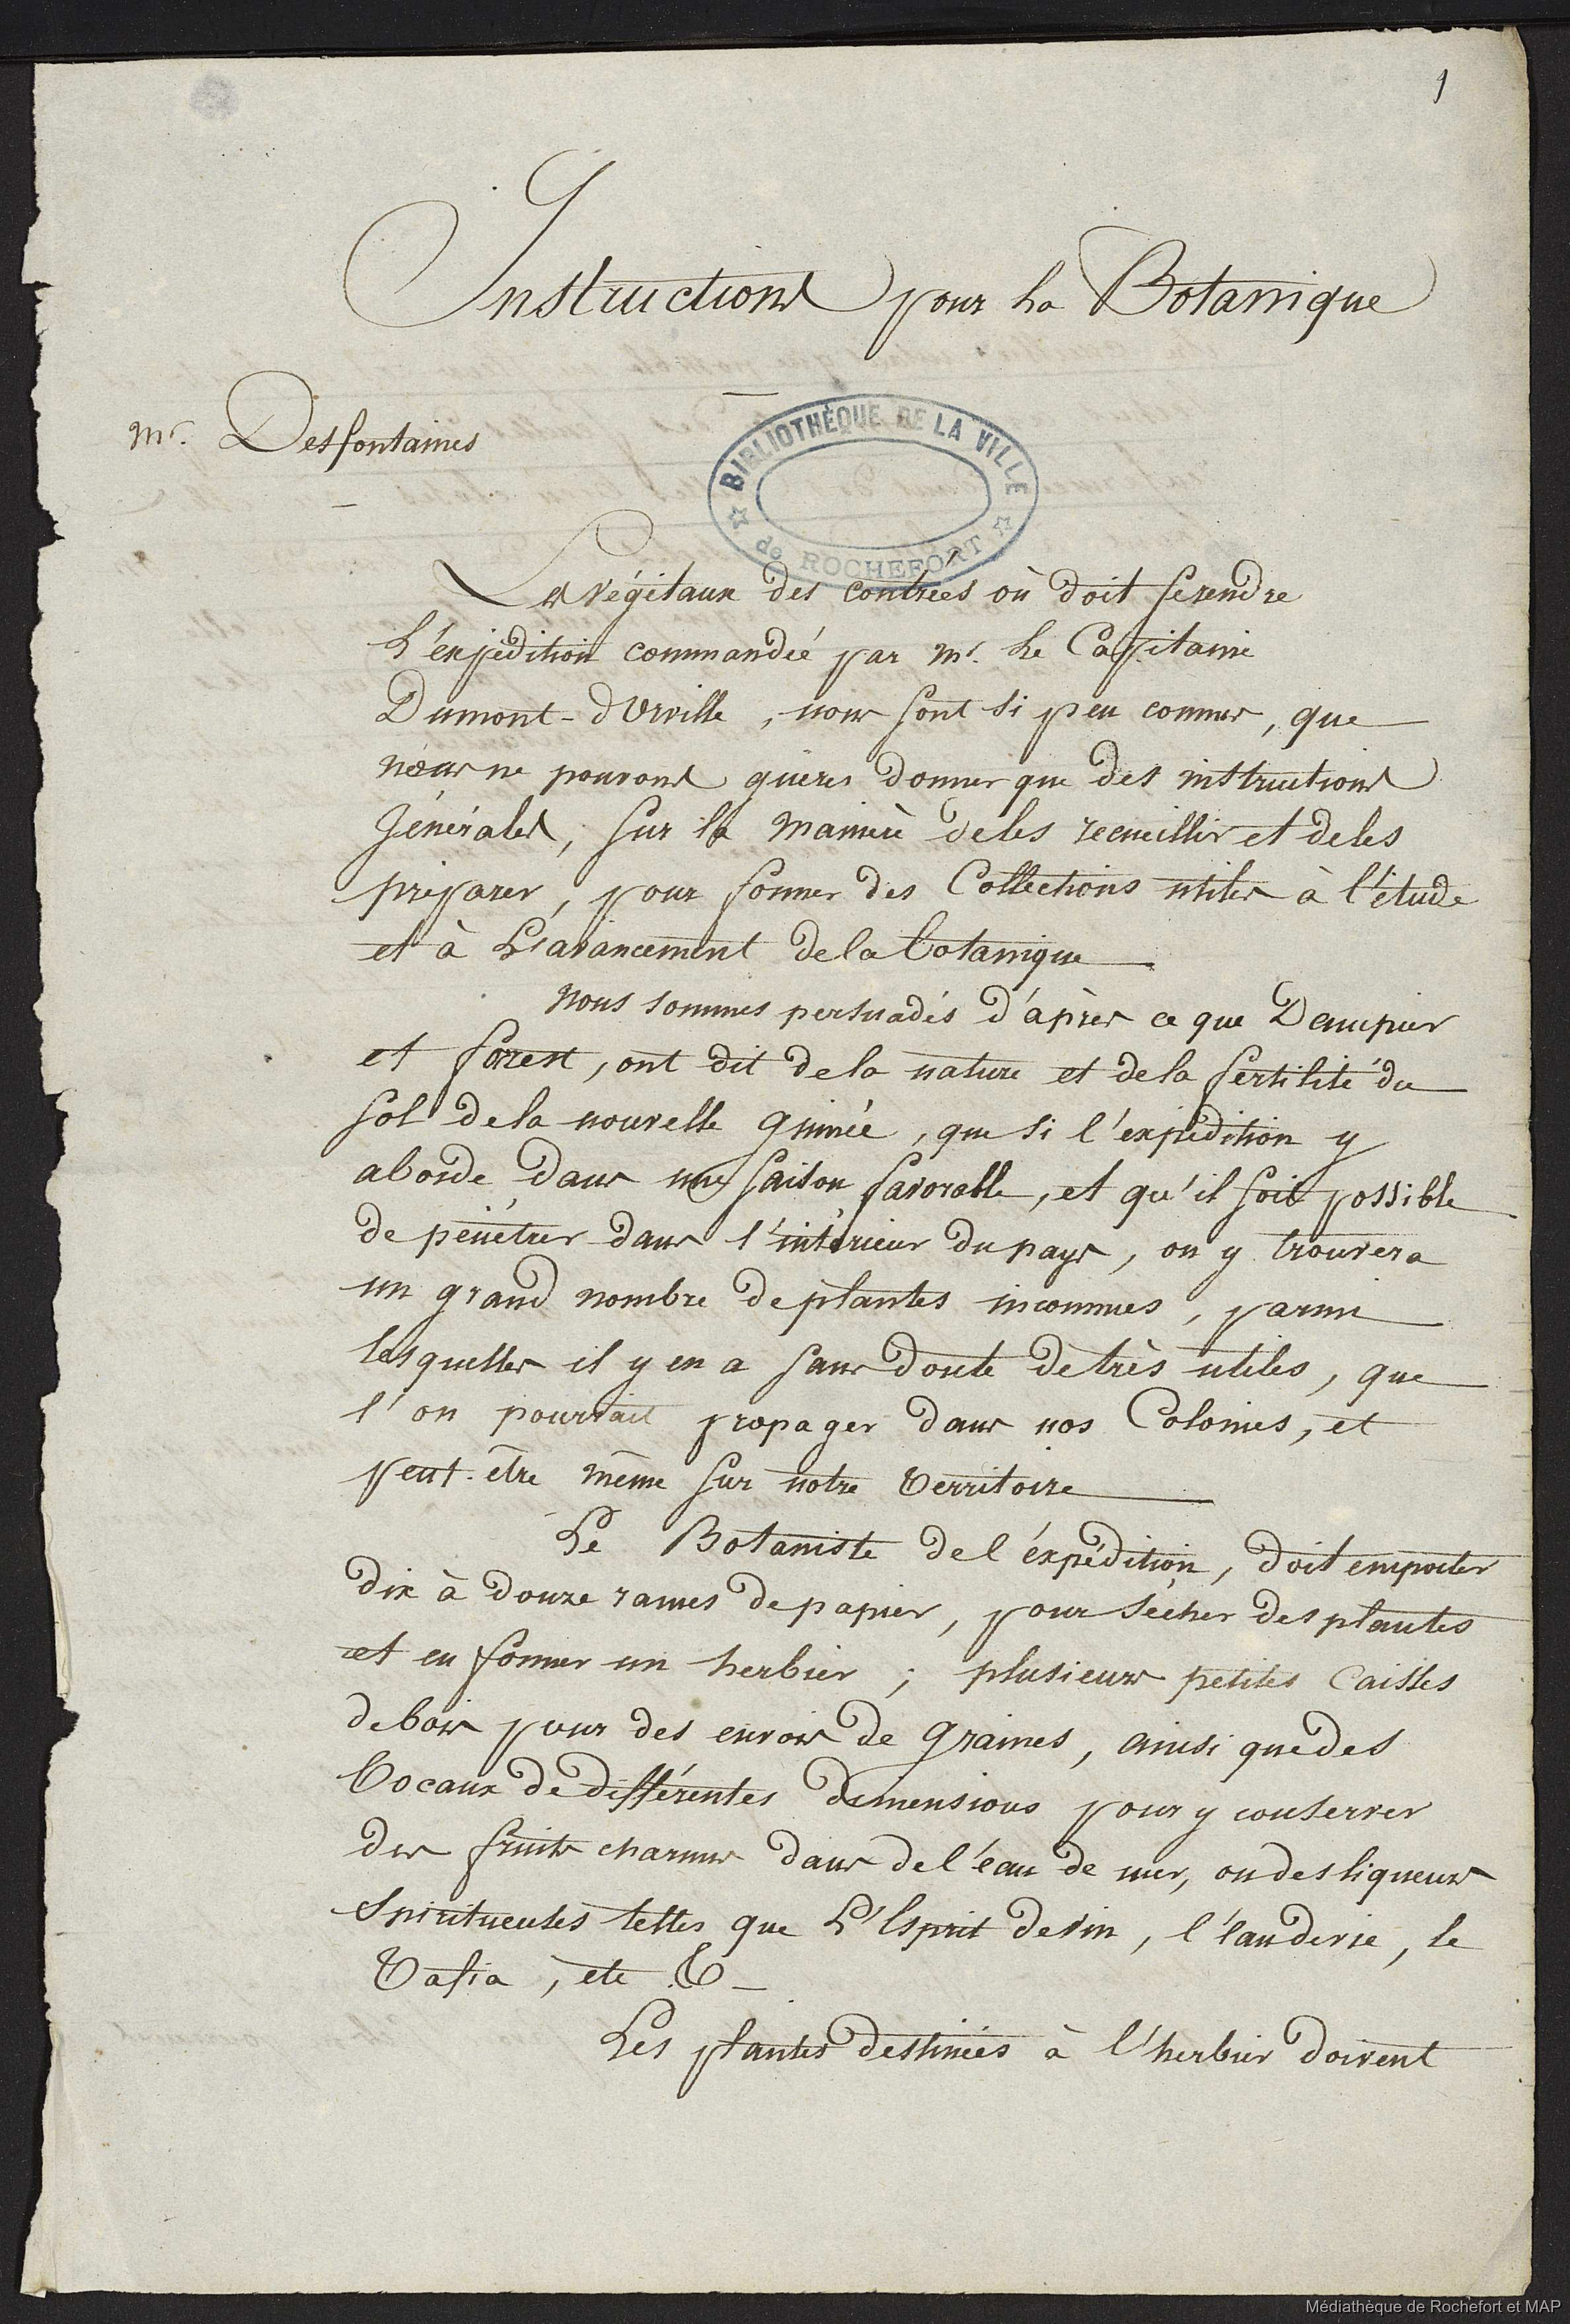 1
Instructions pour la Botanique
Mr. Desfontaines
BIBLIOTHÈQUE DE LA VILLE
de ROCHEFORT
Les végétaux des contrées où doit se rendre
l'expédition commandée par Mr. le Capitaine
Dumont-d'Urville, nous sont si peu connus, que
nous ne pouvons guères donner que des instructions
Générales, sur la manière de les recueillir et de les
préparer, pour former des Collections utiles à l'étude
et à l'avancement de la botanique
Nous sommes persuadés d'après ce que Dampier
et forest, ont dit de la nature et de la fertilité du
sol de la nouvelle guinée, que si l'expédition y
aborde dans une saison favorable, et qu'il soit possible
de pénétrer dans l'intérieur du pays, on y trouvera
un grand nombre de plantes inconnues, parmi
lesquelles il y en a sans doute de très utiles, que
l'on pourrait propager dans nos Colonies, et
peut-être même sur notre territoire
Le Botaniste de l'éxpédition, doit emporter
dix à douze rames de papier, pour sécher des plantes
et en former un herbier ; plusieurs petites Caisses
de bois pour des envois de graines, ainsi que des
bocaux de différentes dimensions pour y conserver
des fruits charnus dans de l'eau de mer, ou des liqueurs
Spiritueuses telles que L'Esprit de vin, l'eau de vie, le
tafia, etc &
Les plantes destinées à l'herbier doivent
Médiathèque de Rochefort et MAP